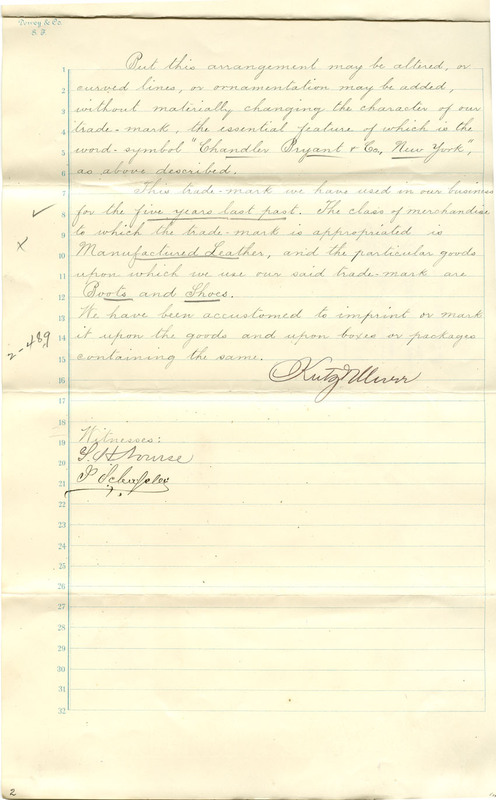 Dewey & Co
S.F.
1 But this arrangement may be altered, or
2 curved lines, or ornamentation may be added,
3 without materially changing the character of our
4 trade-mark, the essential feature of which is the
5 word-symbol "Chandler Bryant & Co, New York",
6 as above described.
7 This trade-mark we have used in our business
8 for the five years last past. The class of merchandise
9 to which the trade-mark is appropriated is
10 Manufactured Leather, and the particular goods
11 upon which we use our said trade-mark are
12 Boots and Shoes.
13 We have been accustomed to imprint or mark
14 it upon the goods and upon boxes or packages
15 containing the same.
x
2-489
16
17
18
19 Witnesses:
20 S. H. Nourse
21
22
23
24
25
26
27
28
29
30
31
32
2